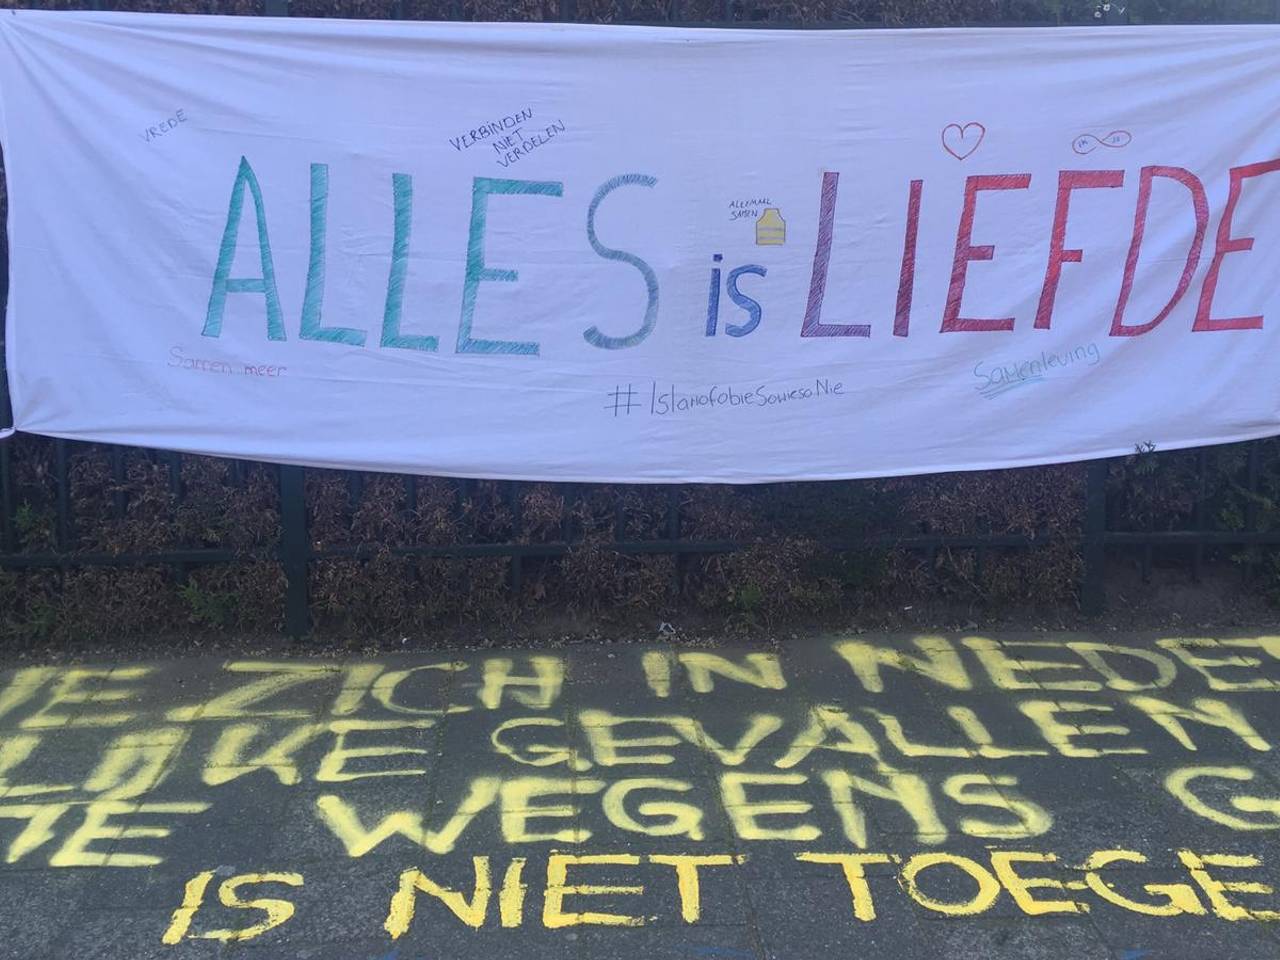 VREDE
VERBINDEN
NIET
VERDELEN
ALLEMAAL
SAMEN
ALLES is LIEFDE
Samen meer
#IslamofobieSowiesoNie
Samenleving
IE ZICH IN NEDE
GEVALLEN
WEGENS G
IS NIET TOEGE